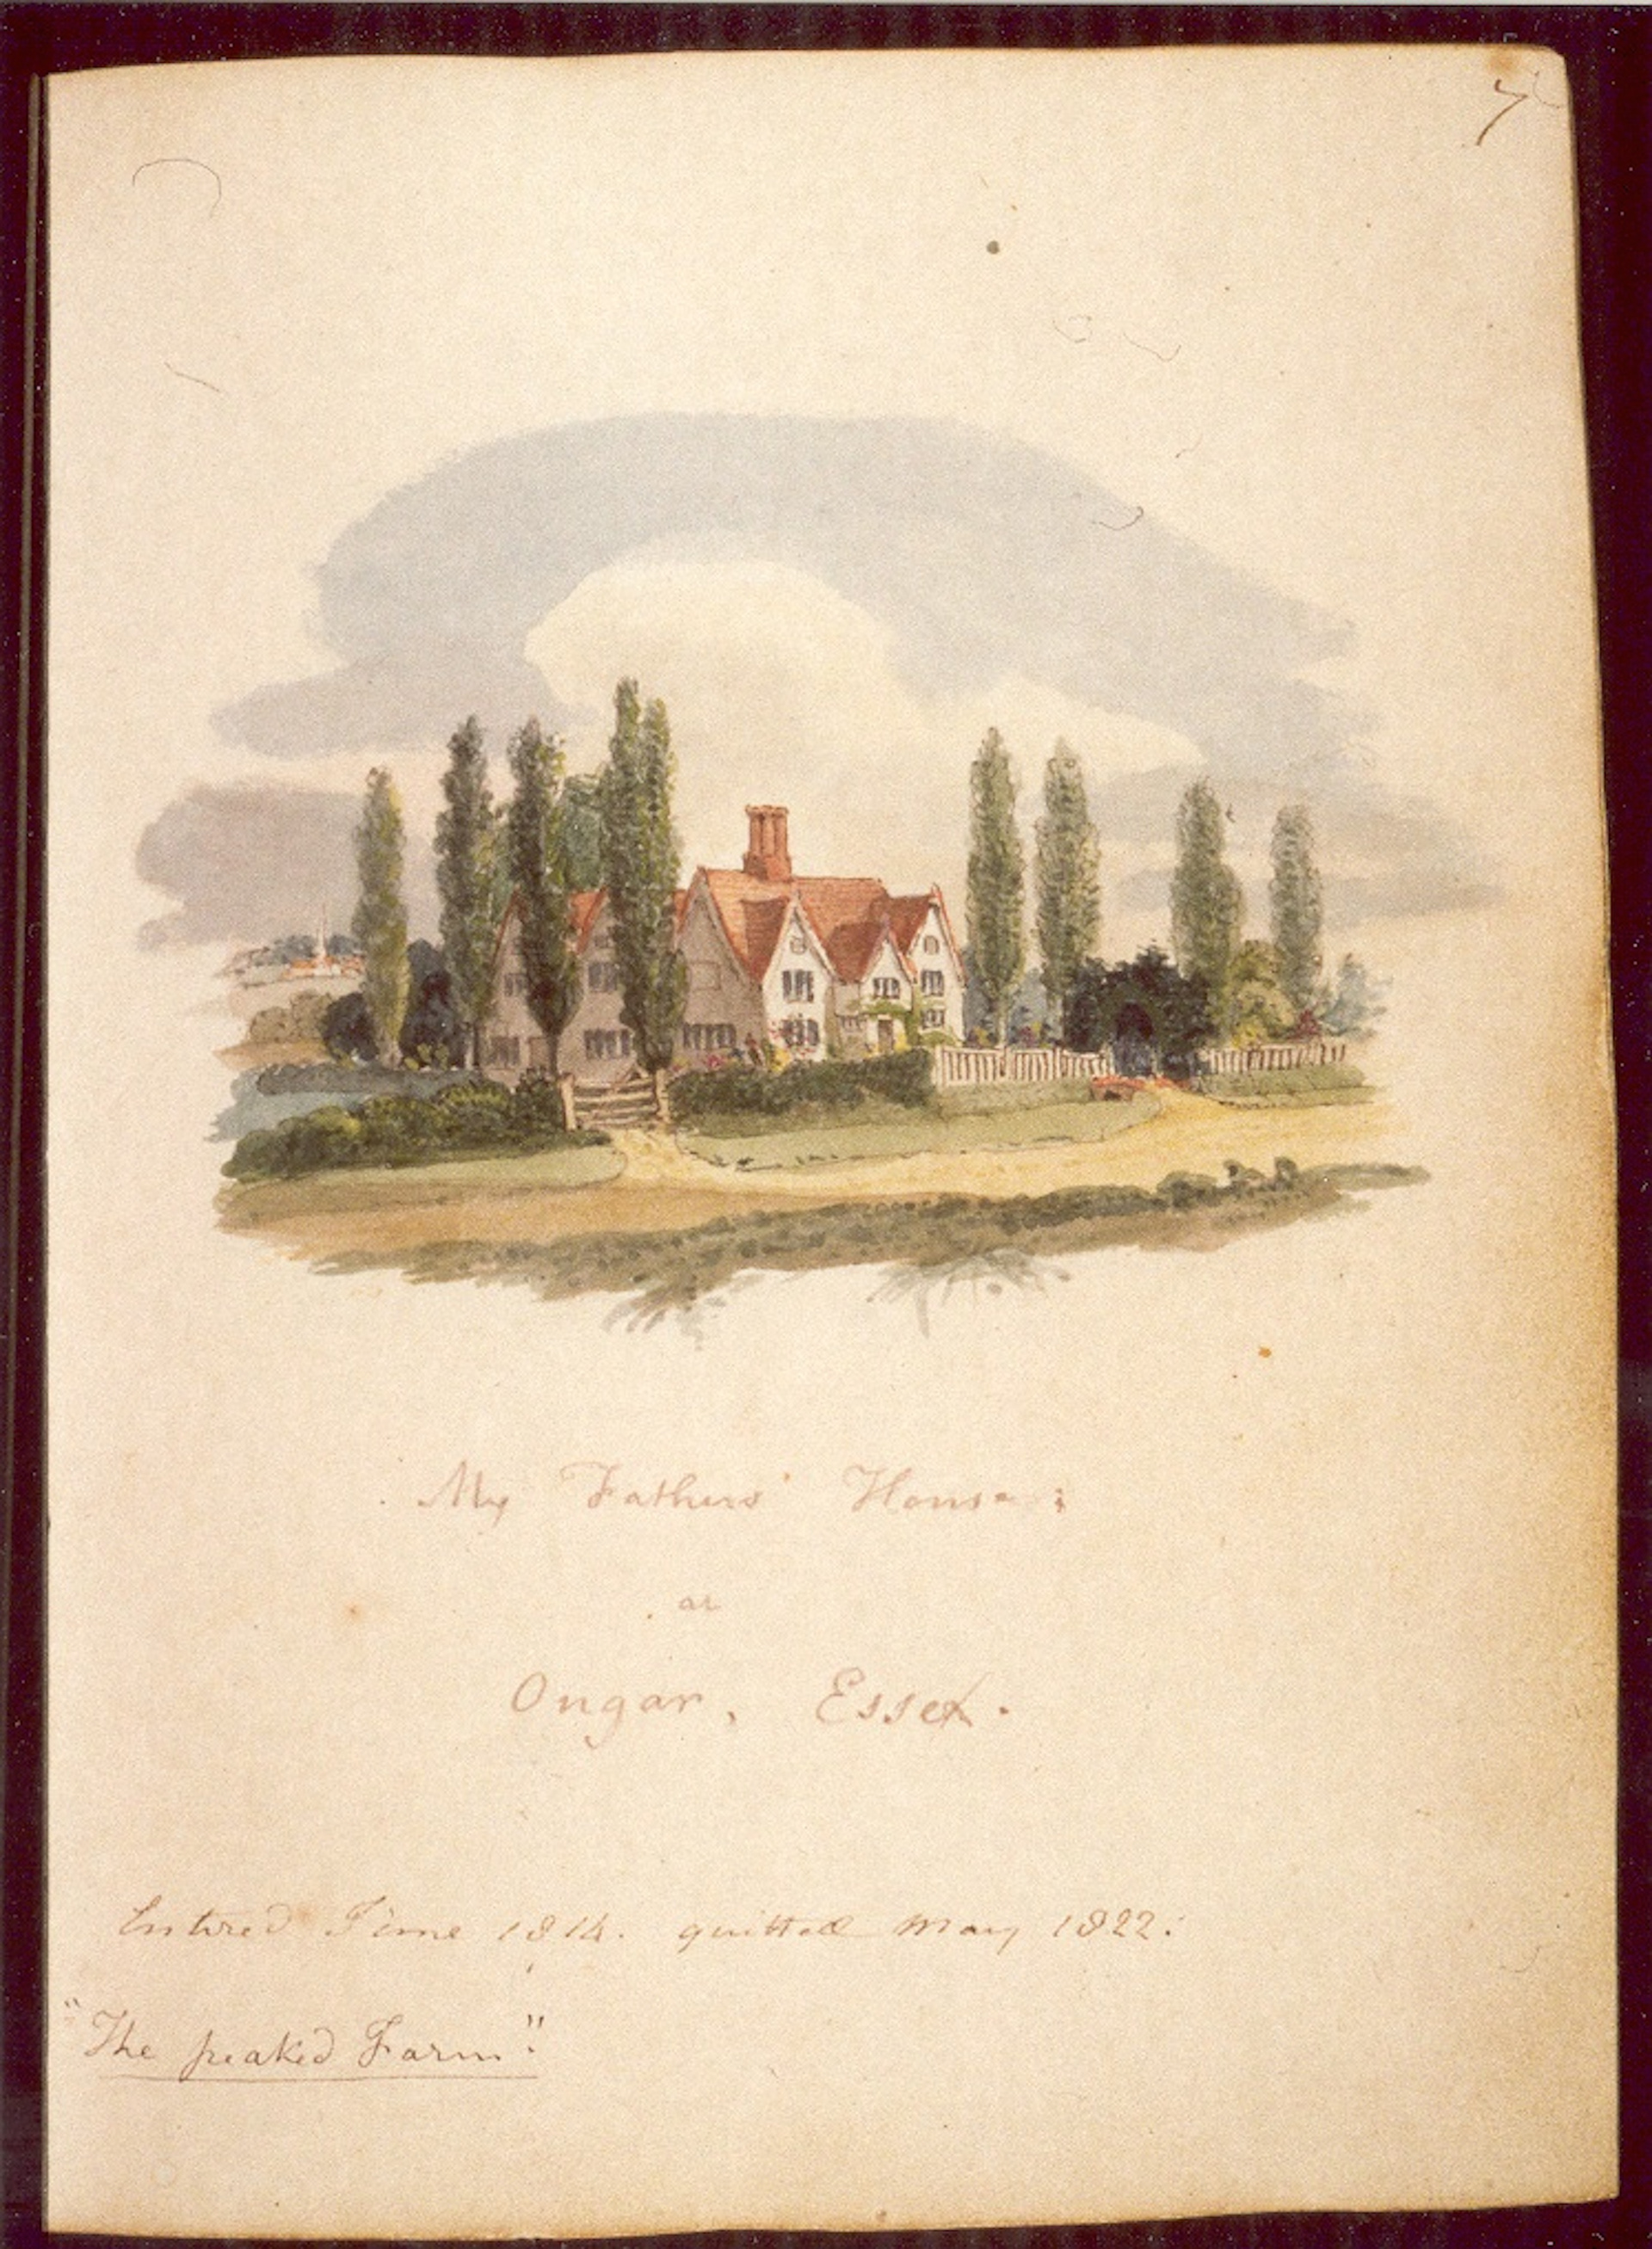 7
My Fathers' House;
at
Ongar, Essex.
Entered June 1814. quitted May 1822.
"The peaked Farm".